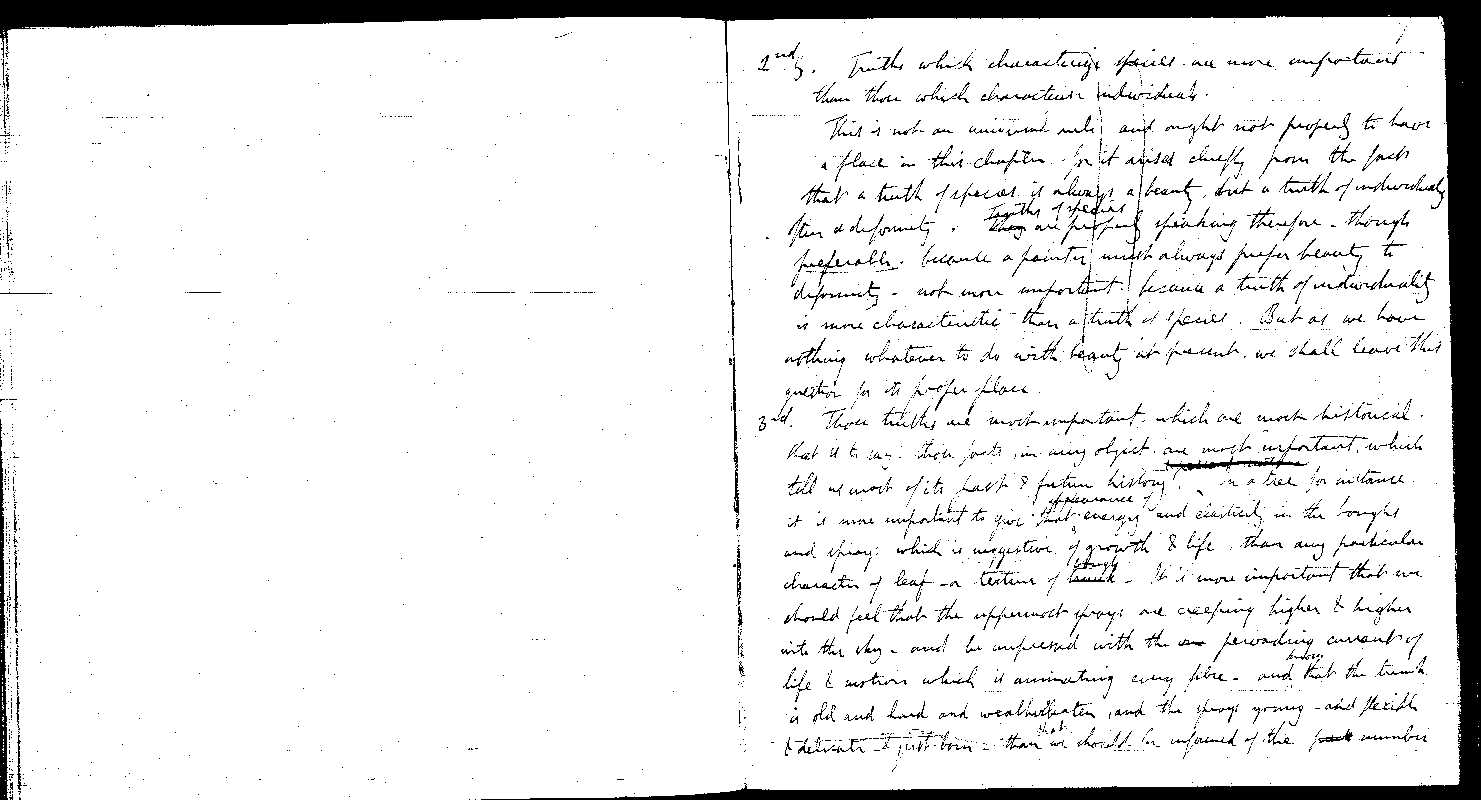 2ndly. Truths which characterize species are more important
than those which characterize individuals.
This is not an universal rule and ought not properly to have
a place in this chapter for it arises chiefly from the fact
that a truth of species is always a beauty, but a truth of individuality
often a deformity. Truths of species are properly speaking therefore - though
preferable. because a painter must always prefer beauty to
deformity - not more important because a truth of individuality
is more characteristic than a truth of species. But as we have
nothing whatever to do with beauty at present. we shall leave this
question for its proper place.
3rd. Those truths are most important. which are most historical.
that is to say. those facts in any object. are most important, which
tell us most of its past & future history. In a tree for instance
it is more important to give that appearance of energy and elasticity in the boughs
and spray: which is suggestive of growth & life. than any particular
character of leaf - or texture of bough - It is more important that we
should feel that the uppermost sprays are creeping higher & higher
into the sky - and be impressed with the pervading currents of
life & motion which is animating every fibre - and know that the trunk
is old and hard and weatherbeaten, and the sprays young - and flexible
& delicate & just born - than that we should be informed of the number